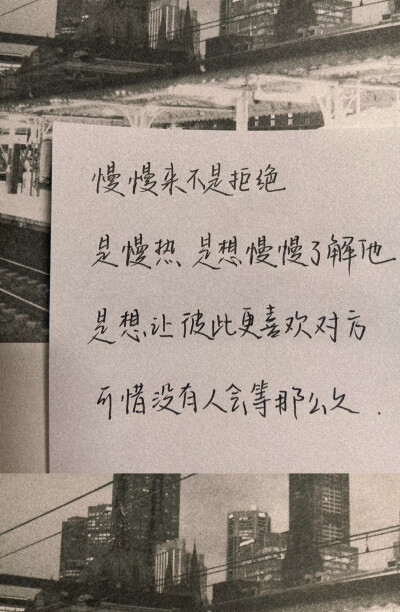 慢慢来不是拒绝
是慢热、是想慢慢了解他
是想让彼此更喜欢对方
可惜没有人会等那么久.